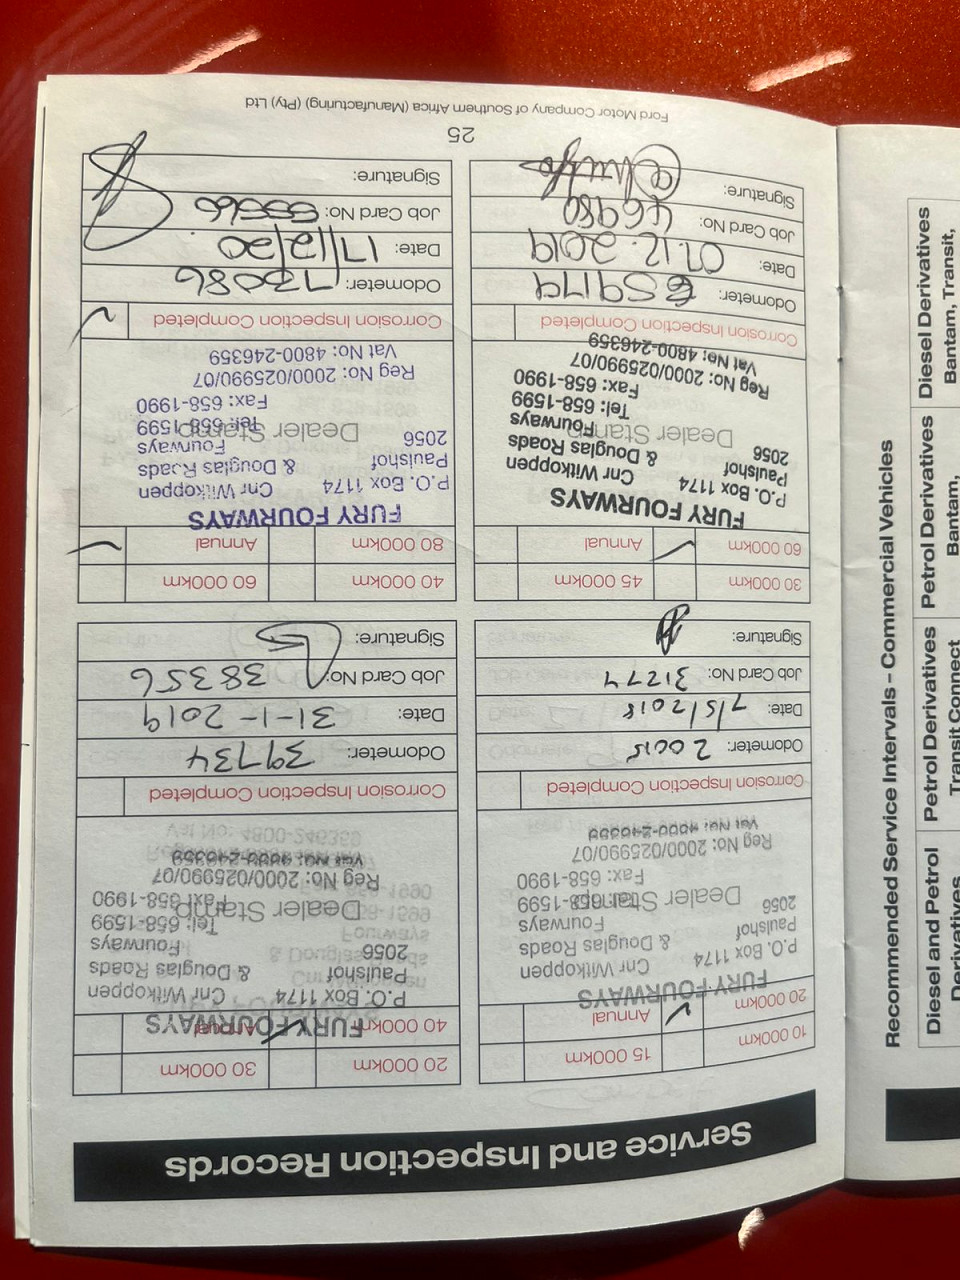 Service and Inspection Records
10 000km
15 000km
20 000km
Annual
FURY FOURWAYS
P.O. Box 1174 Cnr Witkoppen
Paulshof & Douglas Roads
2056 Fourways
Dealer Stamp
Tel: 658-1599
Fax: 658-1990
Reg No: 2000/025990/07
Vat No: 4800-246359
Corrosion Inspection Completed
Odometer: 20015
Date: 7/5/2018
Job Card No: 31277
Signature:
20 000km
30 000km
40 000km
Annual
FURY FOURWAYS
P.O. Box 1174 Cnr Witkoppen
Paulshof & Douglas Roads
2056 Fourways
Dealer Stamp
Tel: 658-1599
Fax: 658-1990
Reg No: 2000/025990/07
Vat No: 4800-246359
Corrosion Inspection Completed
Odometer: 39734
Date: 31-1-2019
Job Card No: 38356
Signature:
30 000km
45 000km
60 000km
Annual
FURY FOURWAYS
P.O. Box 1174 Cnr Witkoppen
Paulshof & Douglas Roads
2056 Fourways
Dealer Stamp
Tel: 658-1599
Fax: 658-1990
Reg No: 2000/025990/07
Vat No: 4800-246359
Corrosion Inspection Completed
Odometer: 59179
Date: 07.12.2019
Job Card No: 46989
Signature:
40 000km
60 000km
80 000km
Annual
FURY FOURWAYS
P.O. Box 1174 Cnr Witkoppen
Paulshof & Douglas Roads
2056 Fourways
Dealer Stamp
Tel: 658-1599
Fax: 658-1990
Reg No: 2000/025990/07
Vat No: 4800-246359
Corrosion Inspection Completed
Odometer: 73086
Date: 17/12/20
Job Card No: 55560
Signature:
25
Ford Motor Company of Southern Africa (Manufacturing) (Pty) Ltd
Recommended Service Intervals – Commercial Vehicles
Diesel and Petrol
Derivatives
Petrol Derivatives
Transit Connect
Petrol Derivatives
Bantam,
Diesel Derivatives
Bantam, Transit,